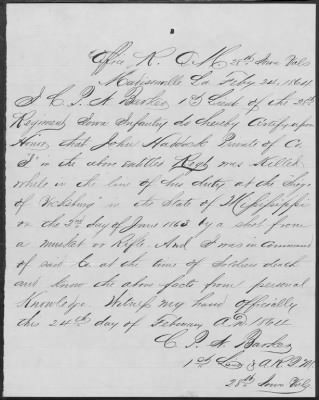 Office R. Q M 28th Iowa Vols
Madisonville La Feby 24 1864
I C. P. A Barker 1st Lieut of the 28th
Regiment Iowa Infantry do hereby Certify upon
Honor that John Private of Co.
I in the above entitled Regt was Killed
while in the line of his duty at the Siege
of Vicksburg in the State of Mississippi
on the 3rd day of June 1863 by a shot from
a musket or Rifle. And I was in command
of said Co. at the time of Soldiers death
and know the above facts from personal
Knowledge. Witness my hand Officially
this 24th day of February A.D 1864
C P. A Barker
1st Lieut & A R Q M.
28th Iowa Vols.